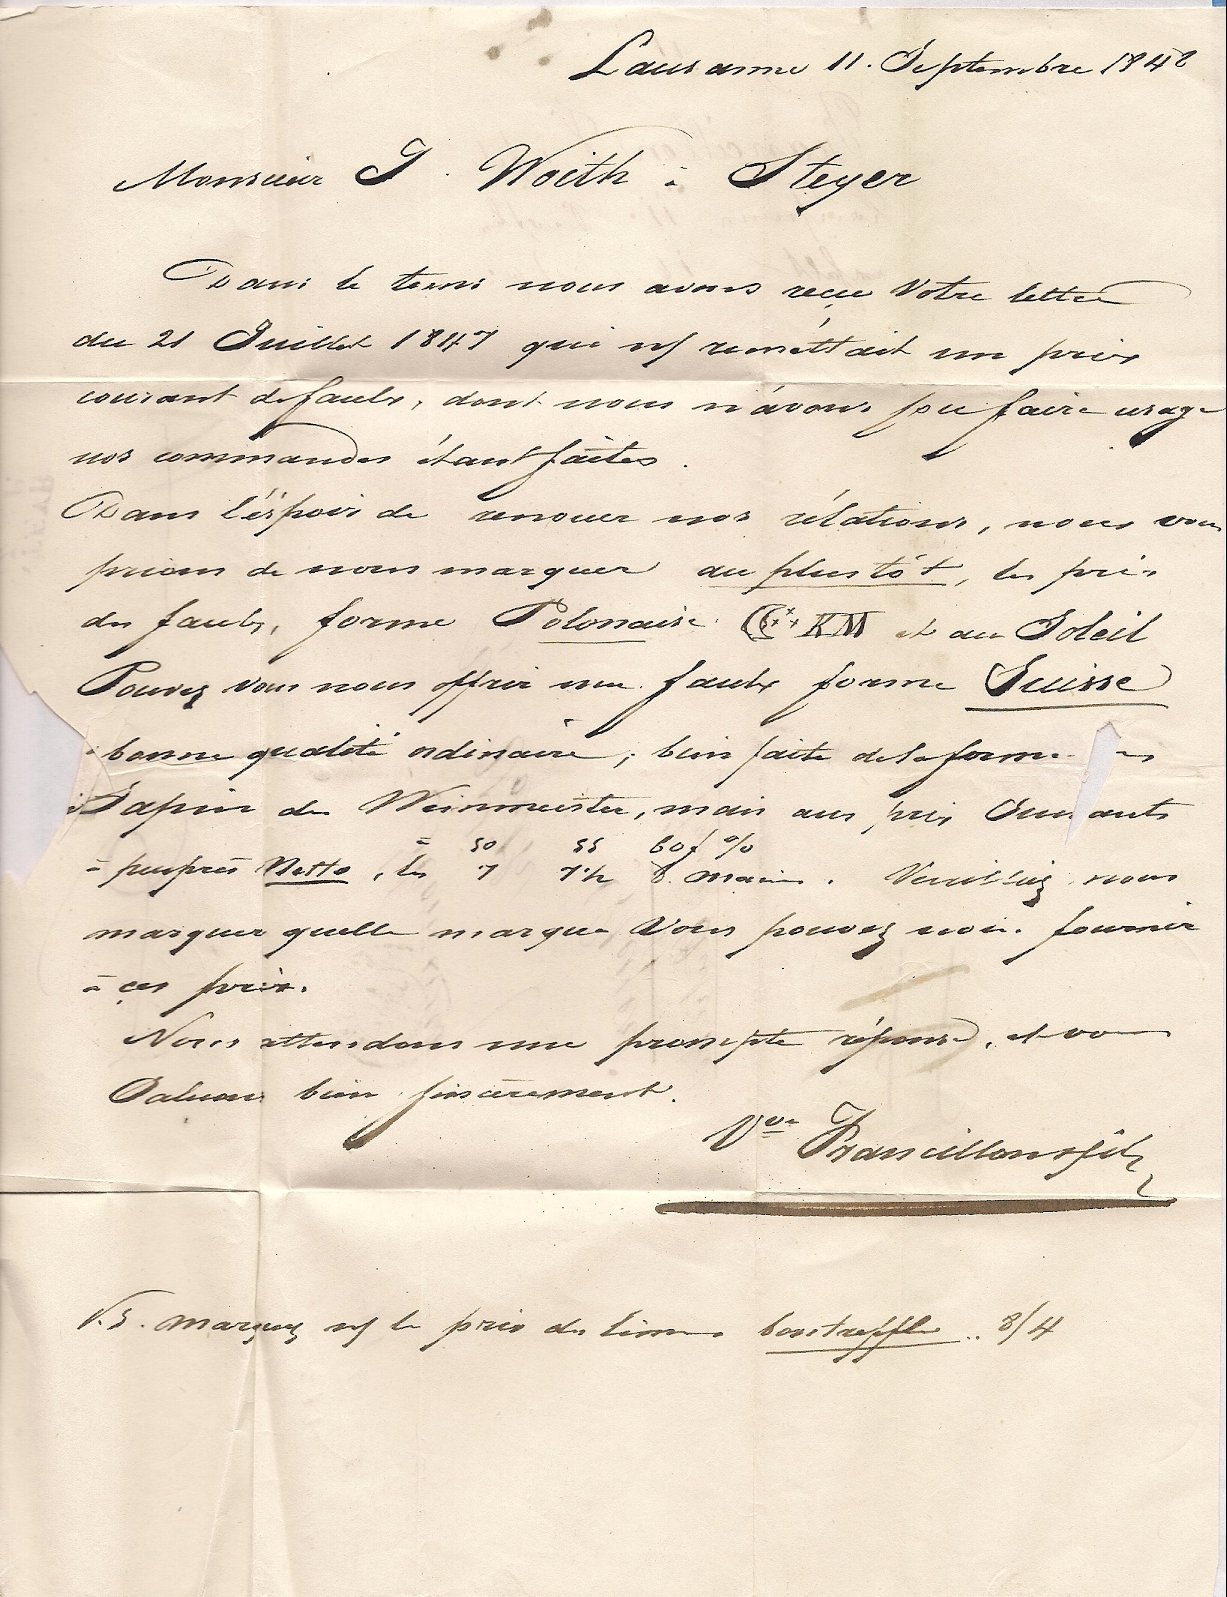 Lausanne 11. Septembre 1848
Monsieur J. Woith à Steyer
Dans le tems nous avons reçu Votre lettre
du 21 Juillet 1847 qui ns remettait un prix
courant de faulx, dont nous n'avons pu faire usage
nos commandes étant faites.
Dans l'éspoir de renouer nos rélations, nous vous
prions de nous marquer au plustôt, les prix
des faulx, forme Polonaise KM et au Soleil
Pouvez vous nous offrir une faulx forme Suisse
bonne qualité ordinaire, bien faite de la forme
Sapin de Weinmeister, mais aux prix Courants
à 50 55 60 f %
à peuprès Netto, les 7 7½ 8 mains. Veuillez nous
marquer quelle marque Vous pouvez nous fournir
à ces prix.
Nous attendons une prompte réponse, et vous
Saluons bien sincèrement.
Vve Francillon & fils
N.S. marquez ns le prix des limes 8/4